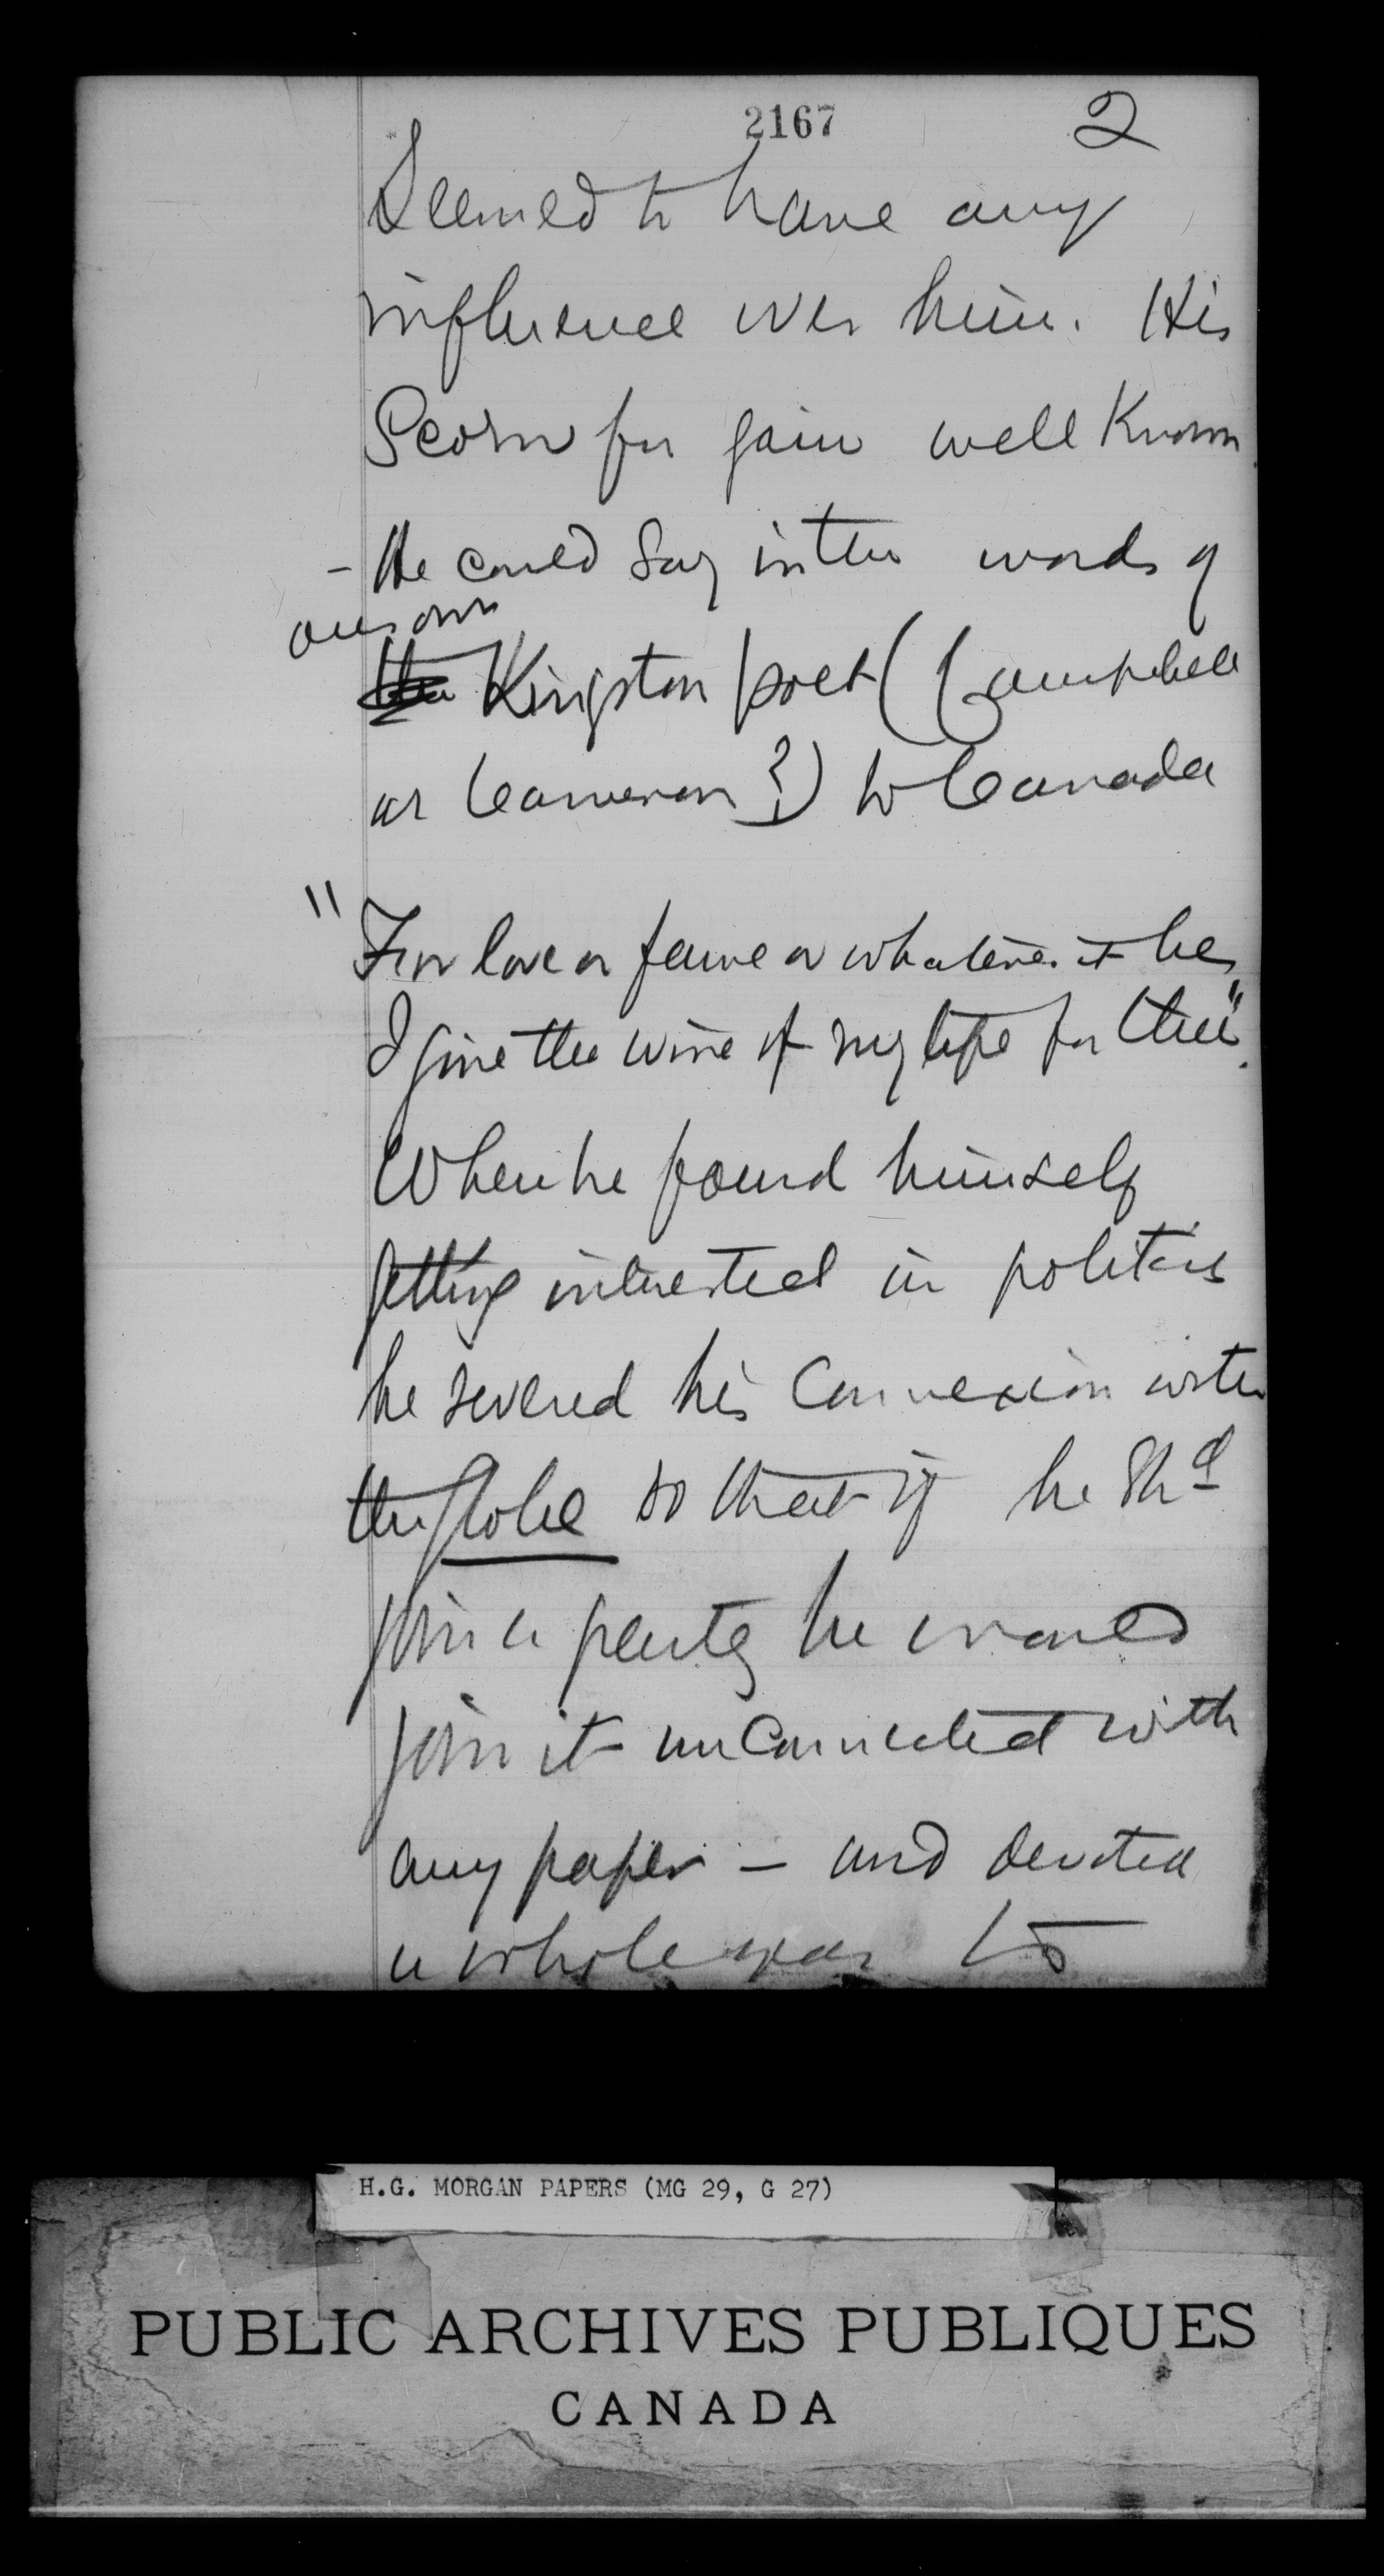 2167 2
Seemed to have any
influence over him. His
Scorn for gain well Known
- He could Say in the words of
our own
the Kingston poet (Campbell
or Cameron?) to Canada
"For love or fame or whatever it be,
I give the wine of my life for thee".
When he found himself
getting interested in politics
he severed his Connexion with
the Globe so that if he Shd
join a party he would
join it unConnected with
any paper - and devoted
a whole year to
H.G. MORGAN PAPERS (MG 29, G 27)
PUBLIC ARCHIVES PUBLIQUES
CANADA